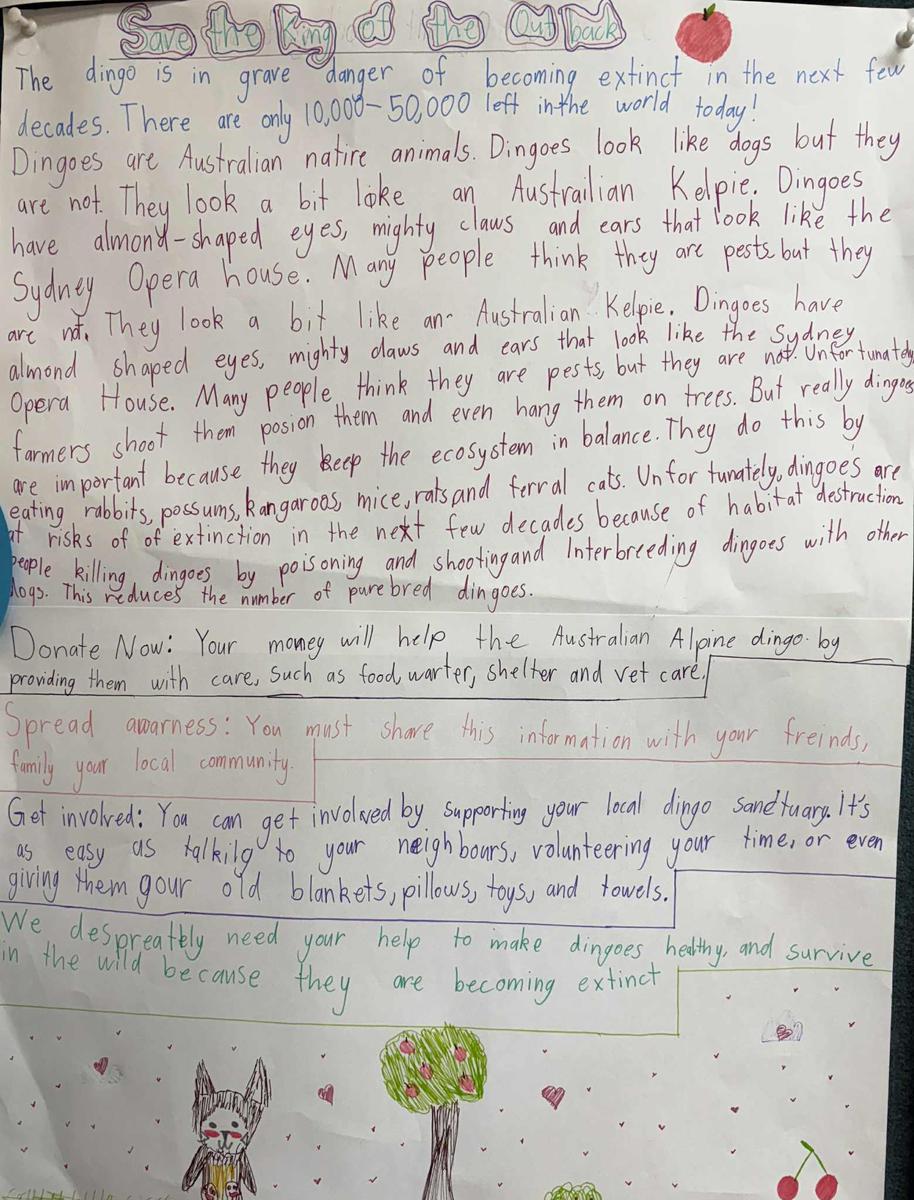 Save the King of the Outback
The dingo is in grave danger of becoming extinct in the next few
decades. There are only 10,000-50,000 left in the world today!
Dingoes are Australian natire animals. Dingoes look like dogs but they
are not. They look a bit like an Austrailian Kelpie. Dingoes
have almond-shaped eyes, mighty claws and ears that look like the
Sydney Opera house. Many people think they are pests but they
are not. They look a bit like an Australian Kelpie. Dingoes have
almond shaped eyes, mighty claws and ears that look like the Sydney
Opera House. Many people think they are pests, but they are not. Unfortunately
farmers shoot them posion them and even hang them on trees. But really dingoes
are important because they keep the ecosystem in balance. They do this by
eating rabbits, possums, kangaroos, mice, rats and ferral cats. Unfortunately, dingoes are
at risks of of extinction in the next few decades because of habitat destruction
people killing dingoes by poisoning and shooting and Interbreeding dingoes with other
dogs. This reduces the number of purebred dingoes.
Donate Now: Your money will help the Australian Alpine dingo by
providing them with care, Such as food, warter, shelter and vet care.
Spread awarness: You must share this information with your freinds,
family your local community.
Get involved: You can get involved by supporting your local dingo sanctuary. It's
as easy as talkilg to your neighbours, volunteering your time, or even
giving them gour old blankets, pillows, toys, and towels.
We despreatly need your help to make dingoes healthy, and survive
in the wild because they are becoming extinct